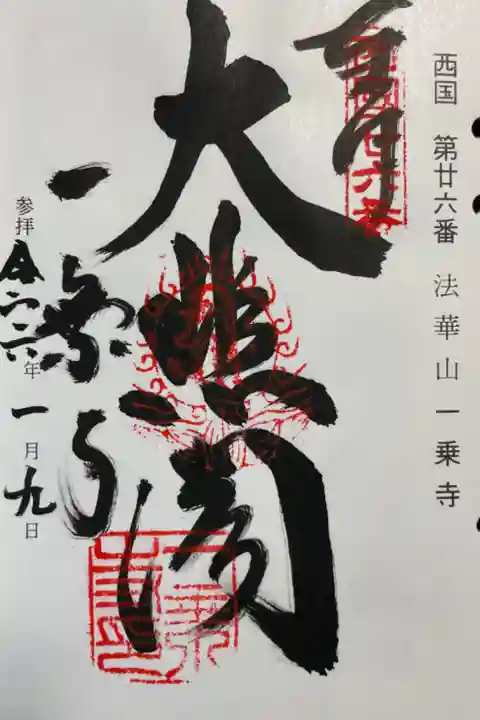 西国 第廿六番 法華山一乗寺
奉拝
西国廿六番
大悲閣
一乗寺
参拝 令和六年一月九日